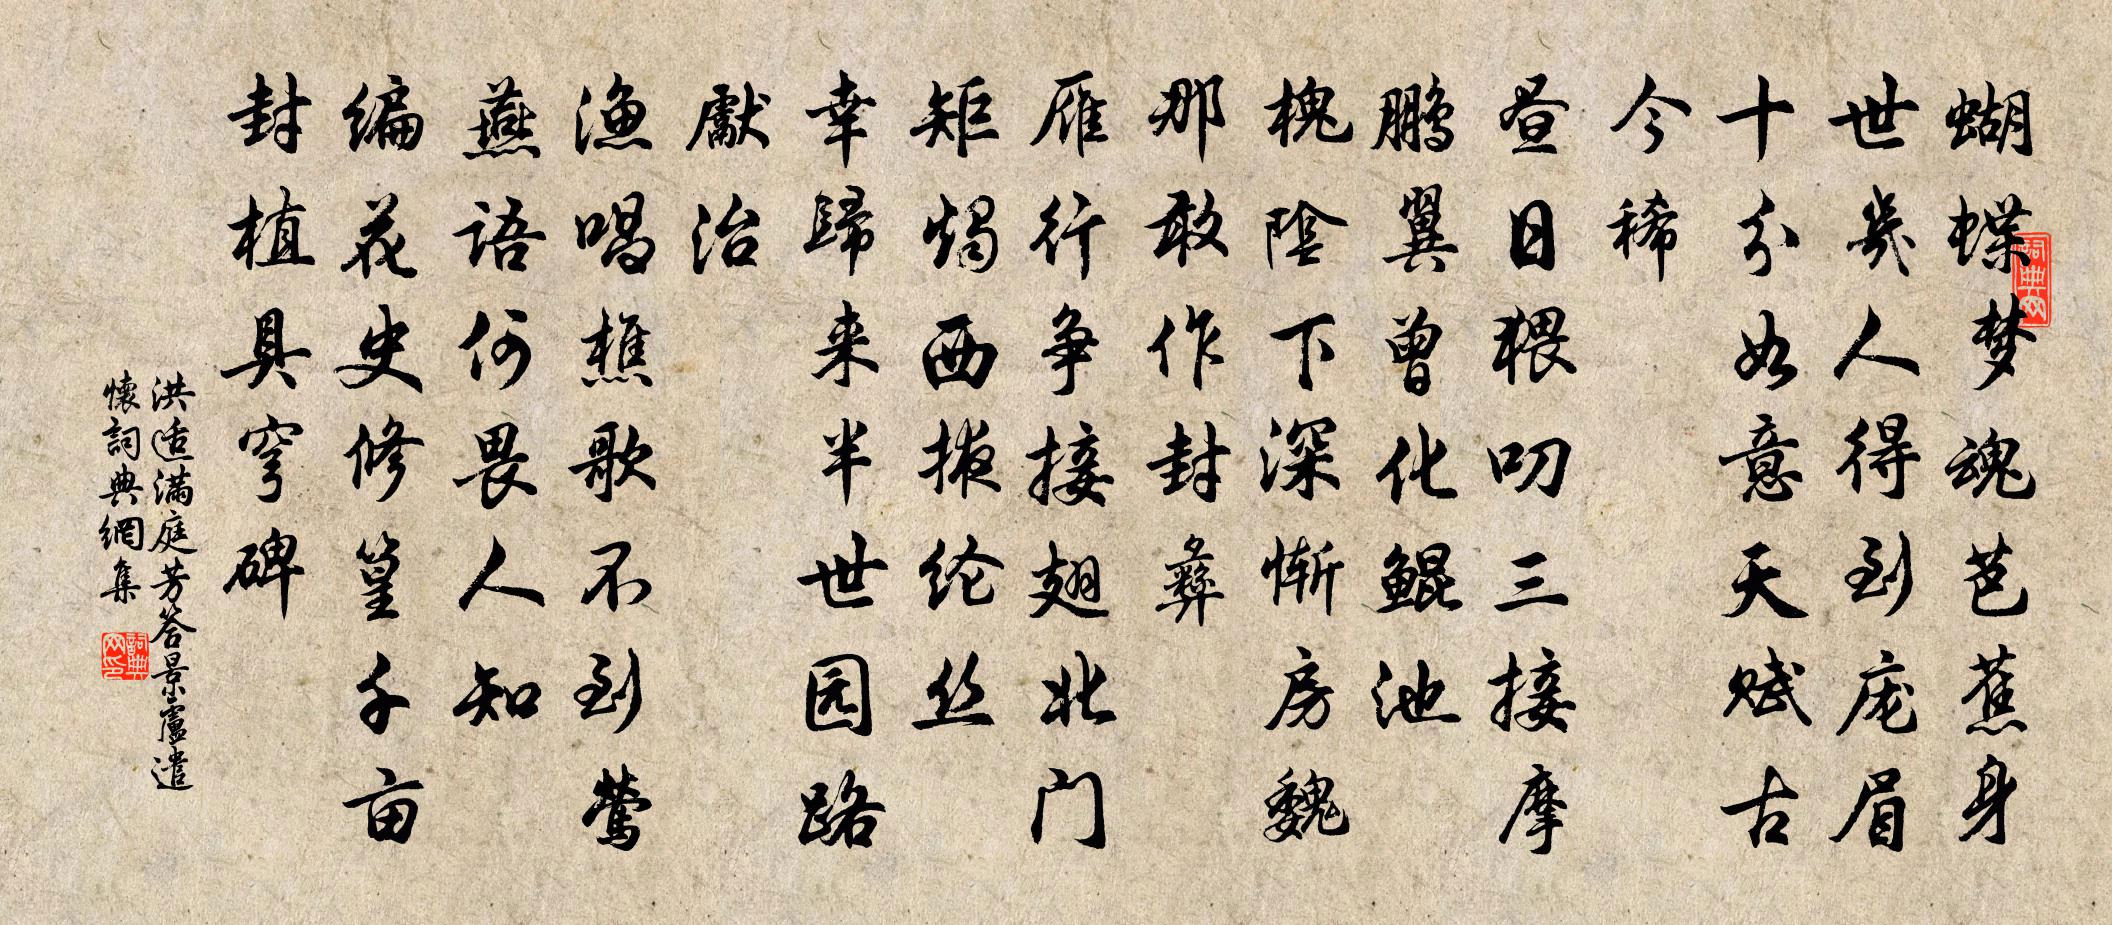 蝴蝶梦魂芭蕉身
世幾人得到庞眉
十分如意天赋古
今稀
昼日猥叨三接摩
鹏翼曾化鲲池
槐陰下深惭房魏
那敢作封彝
雁行争接翅北门
矩燭西掖纶丝
幸歸来半世园路
獻治
渔唱樵歌不到莺
燕語何畏人知
编花史修篁千亩
封植具穹碑
洪适满庭芳答景盧遣
懷詞典網集
詞典网
詞典网印